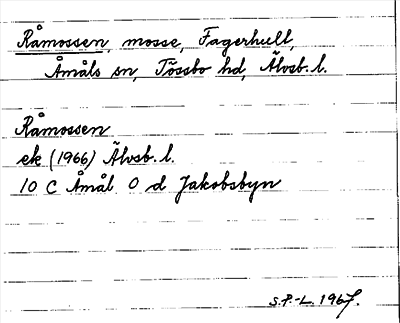 Råmossen, mosse, Fagerhult,
Åmåls sn, Tössbo hd, Älvsb. l.
Råmossen
ek (1966) Älvsb. l.
10 C Åmål O d Jakobsbyn
S.P.-L. 1967.